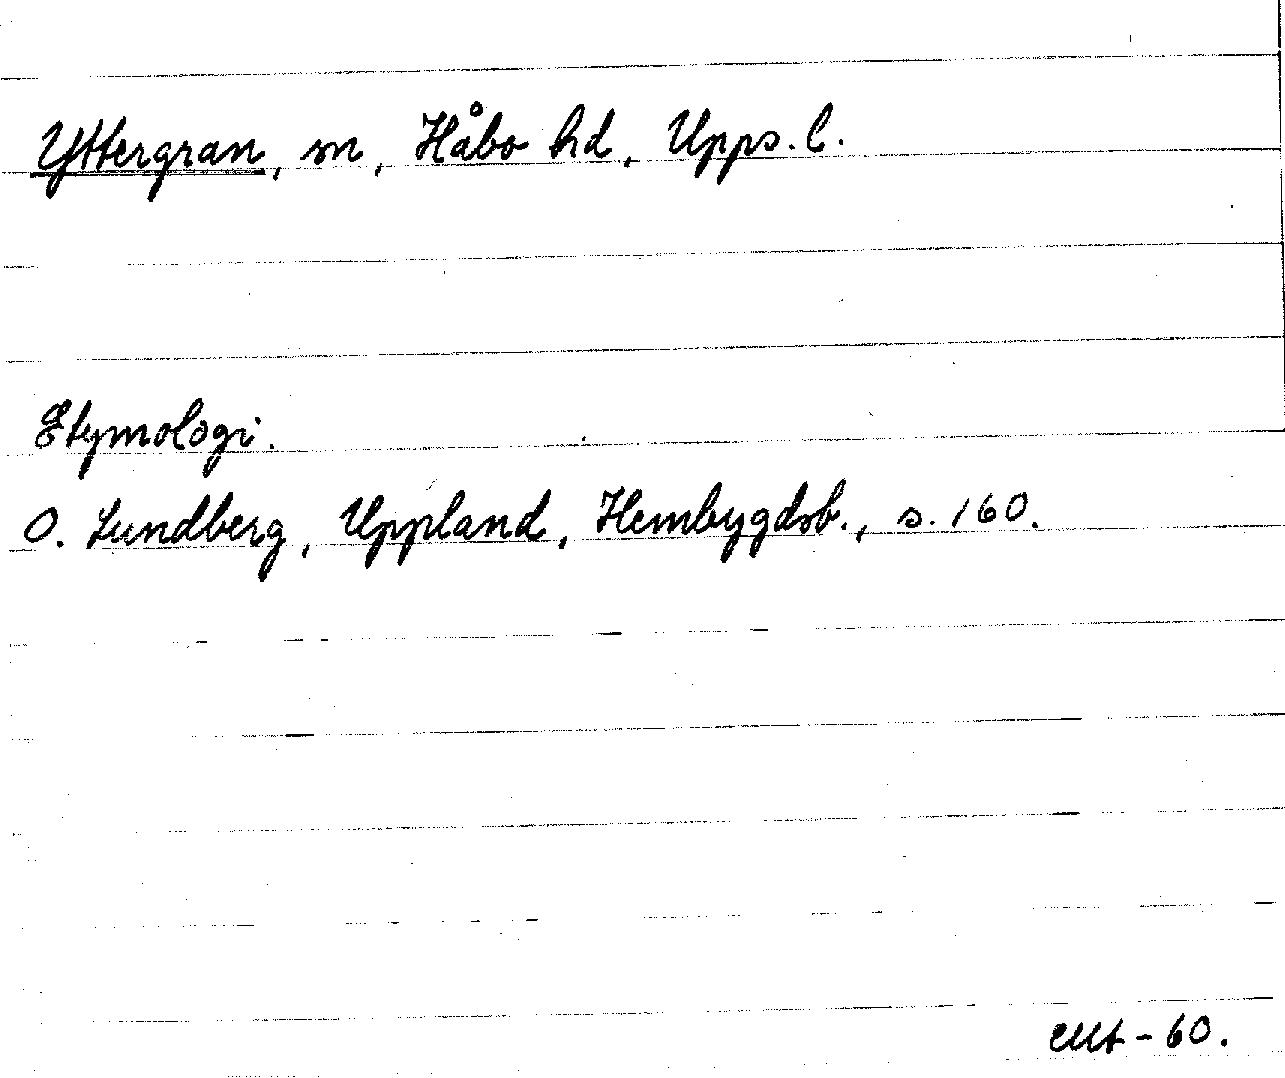 Yttergran, sn, Håbo hd, Upps. l.
Etymologi.
O. Lundberg, Uppland, Hembygdsb., s. 160.
- 60.